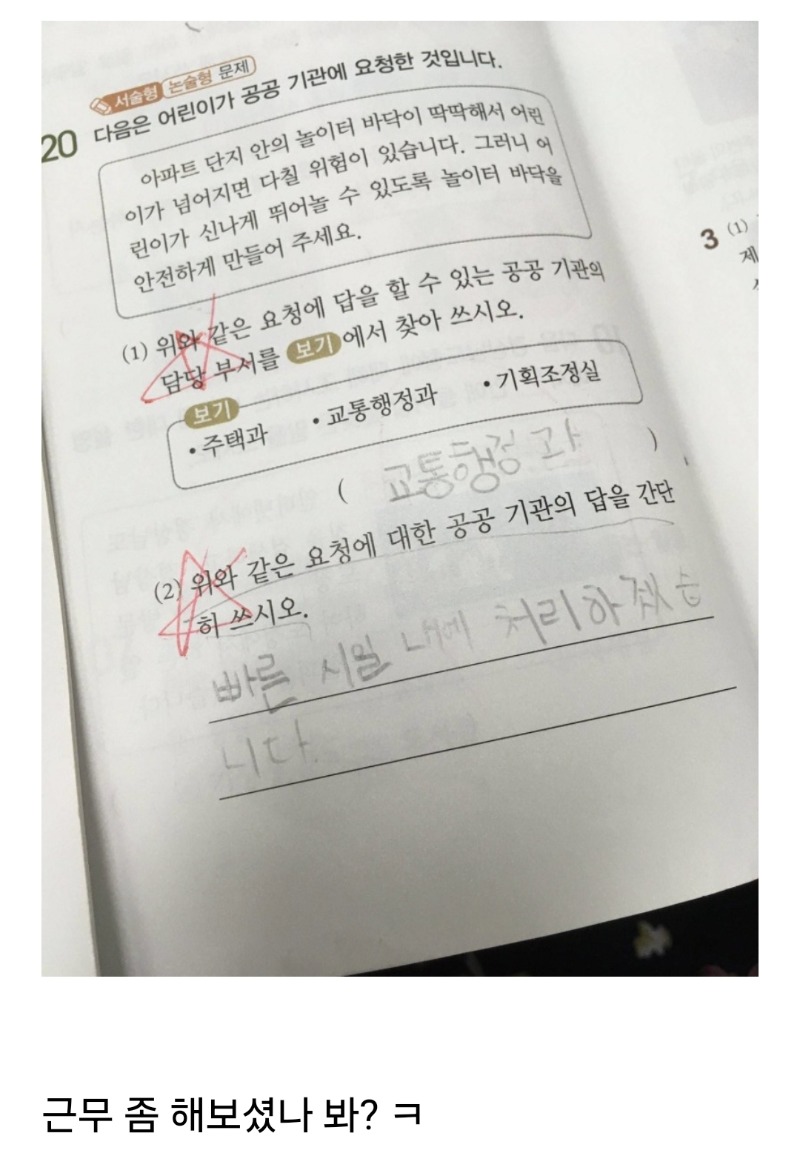 서술형 논술형 문제
20 다음은 어린이가 공공 기관에 요청한 것입니다.
아파트 단지 안의 놀이터 바닥이 딱딱해서 어린
이가 넘어지면 다칠 위험이 있습니다. 그러니 어
린이가 신나게 뛰어놀 수 있도록 놀이터 바닥을
안전하게 만들어 주세요.
(1) 위와 같은 요청에 답을 할 수 있는 공공 기관의
담당 부서를 보기 에서 찾아 쓰시오.
보기
• 주택과 • 교통행정과 • 기획조정실
( 교통행정과 )
(2) 위와 같은 요청에 대한 공공 기관의 답을 간단
히 쓰시오.
빠른 시일 내에 처리하겠습
니다.
3 (1)
제
근무 좀 해보셨나 봐? ㅋ